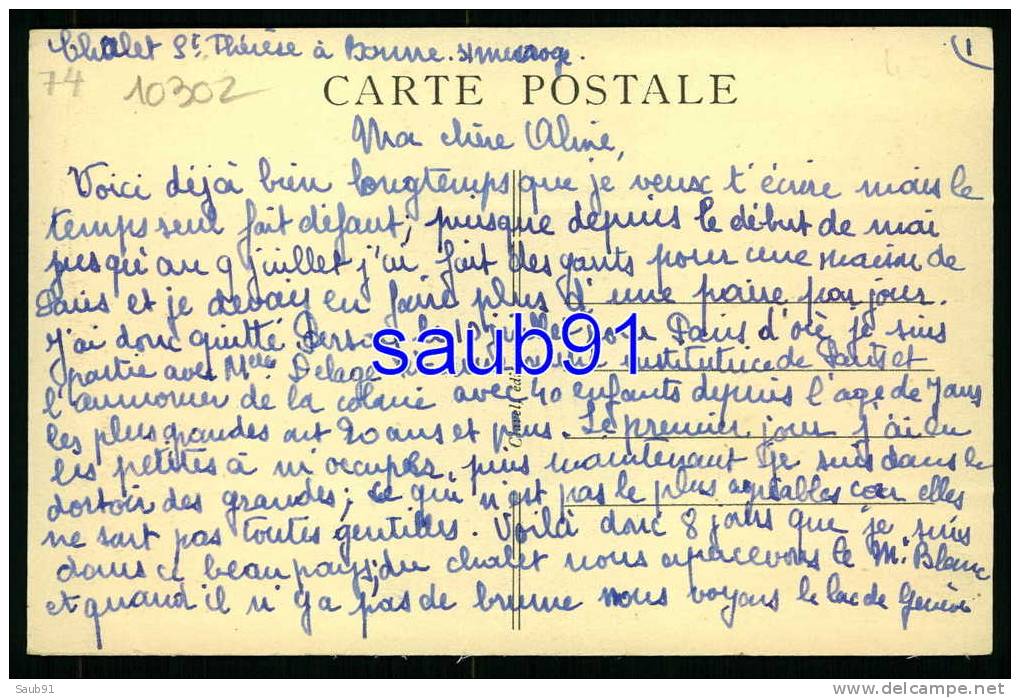 Chalet St. Thérèse à Bonne. s/menoge.
1
74 10302
CARTE POSTALE
Ma chère Aline,
Voici déjà bien longtemps que je veux t'écrire mais le
temps seul fait défaut, puisque depuis le début de mai
jusqu'au 9 juillet j'ai fait des gants pour une maison de
Paris et je devais en faire plus d'une paire par jour.
J'ai donc quitté le juillet pour Paris d'où je suis
partie avec Melle Delage une institutrice de Paris et
l'aumonier de la colonie avec 40 enfants depuis l'age de 7 ans
les plus grandes ont 20 ans et plus. Le premier jour j'ai eu
les petites à m'occuper, puis maintenant je suis dans le
dortoir des grandes; ce qui n'est pas le plus agréables car elles
ne sont pas toutes gentilles. Voilà donc 8 jours que je suis
dans ce beau pays; du chalet nous apercevons le Mt Blanc
et quand il n'y a pas de brume nous voyons le lac de Genève
saub91
Saub91
www.delcampe.net